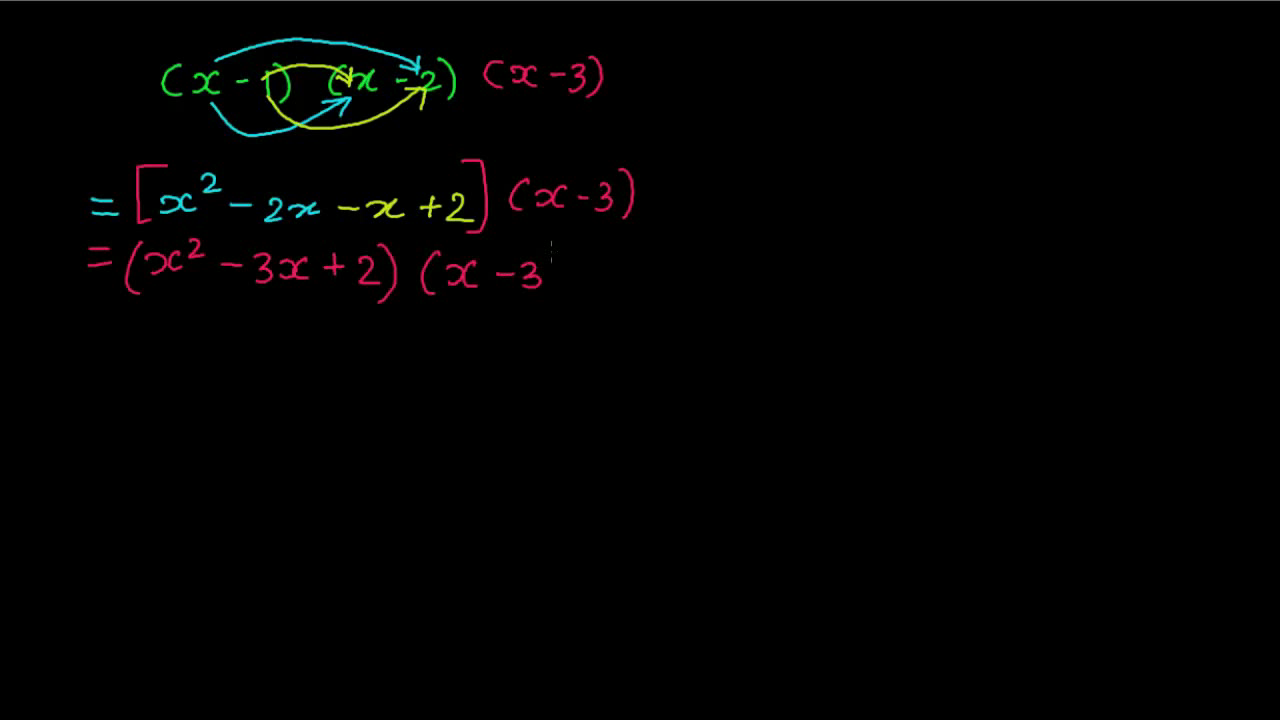 (x - 1) (x - 2) (x - 3)
= [x² - 2x - x + 2] (x - 3)
= (x² - 3x + 2) (x - 3